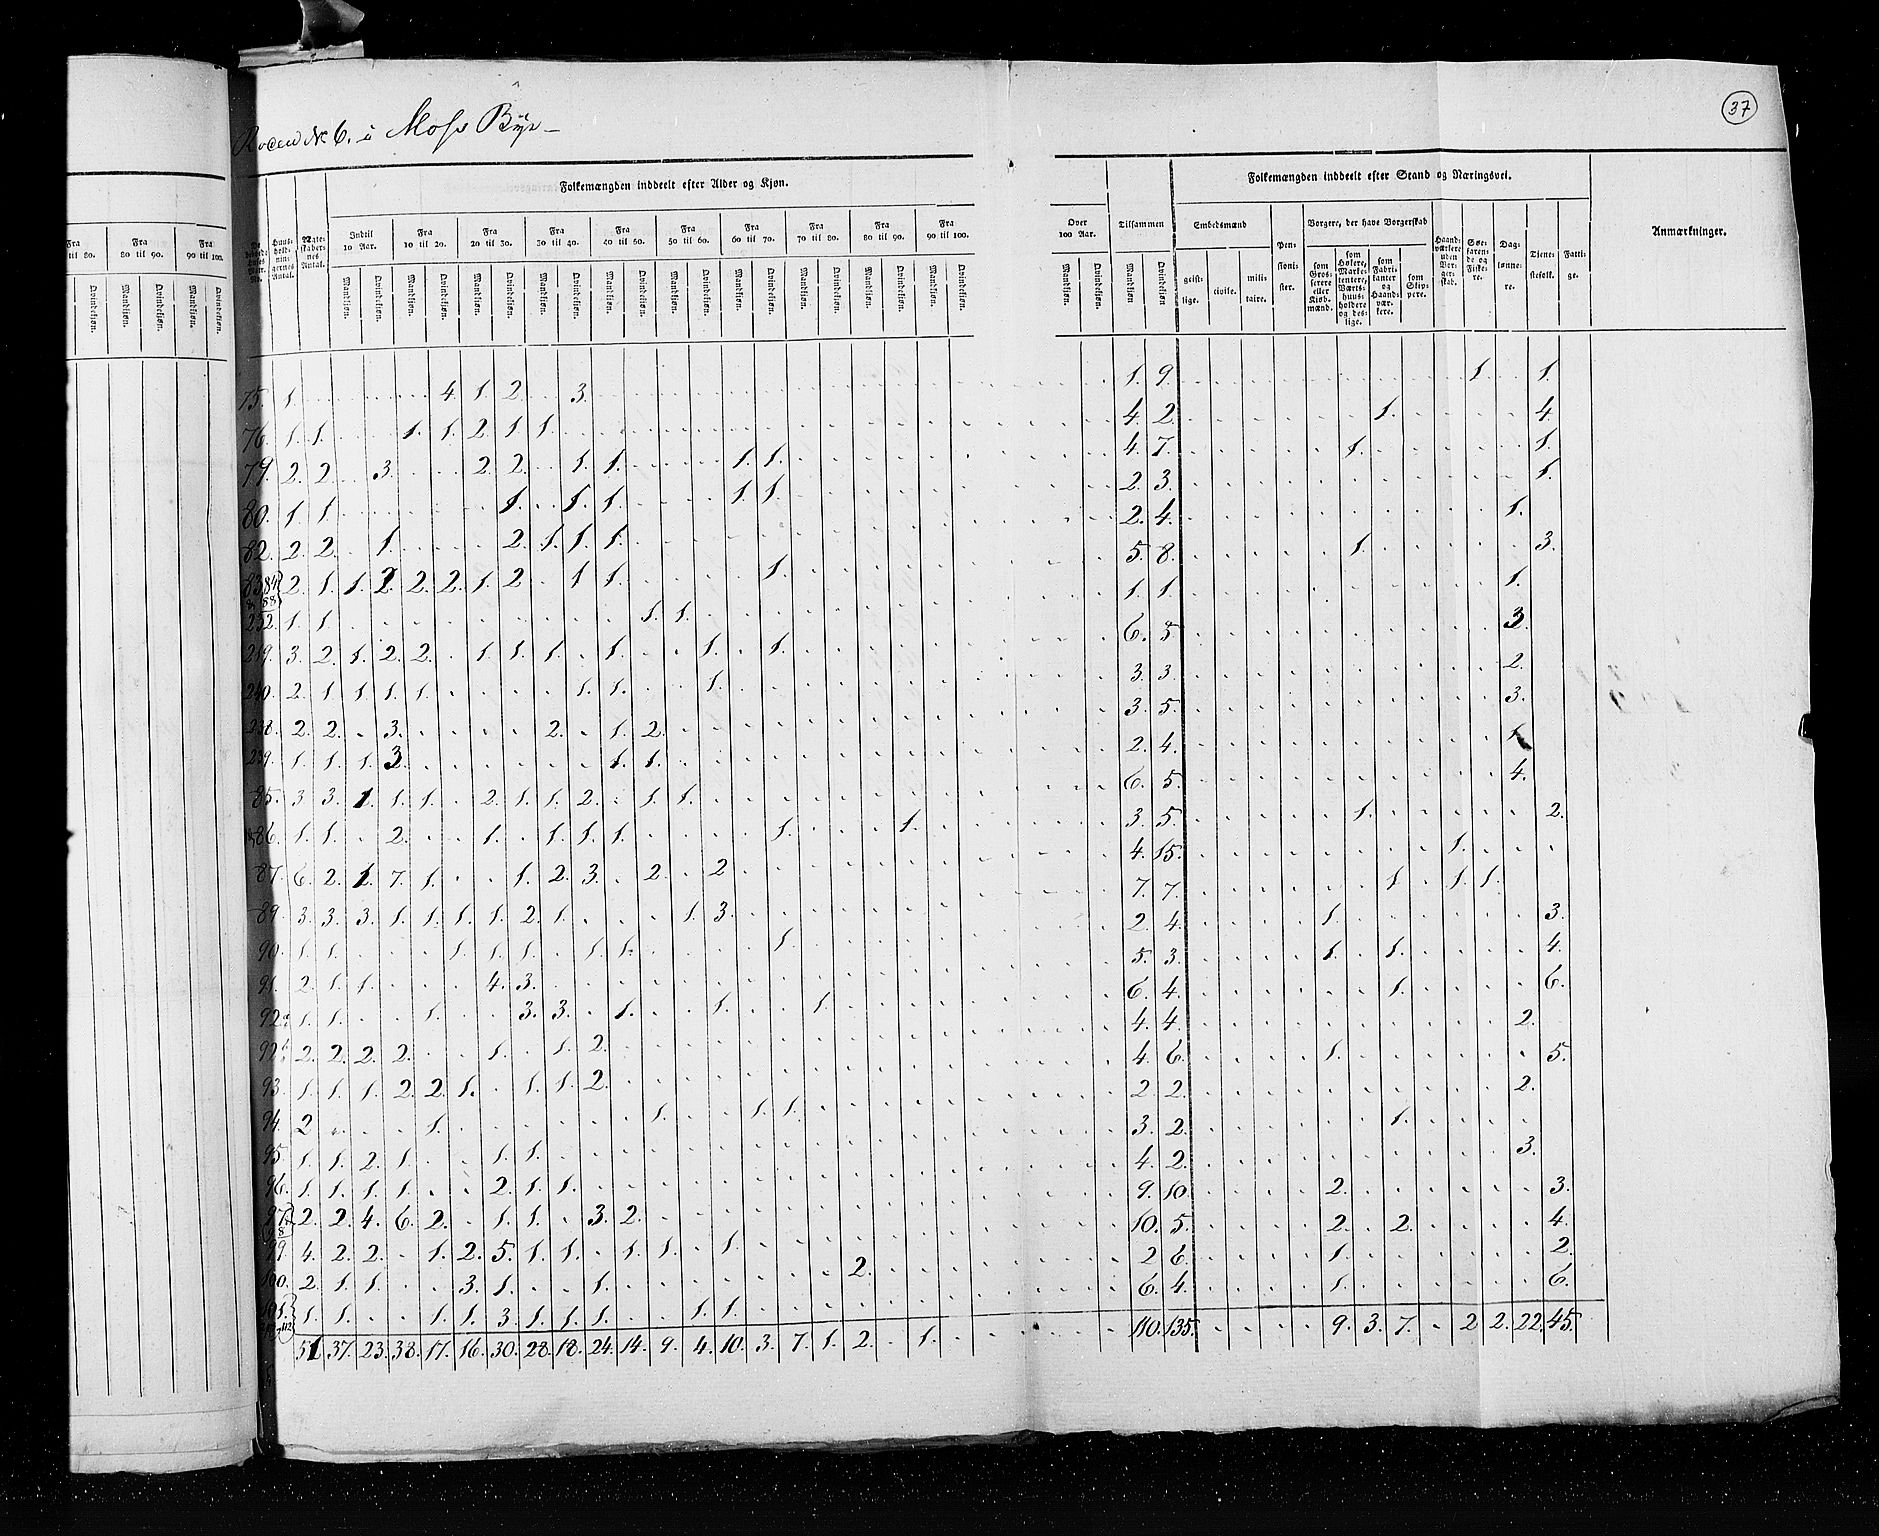 37
Roden No 6. i Moss Bye
Folkemængden inddeelt efter Alder og Kjøn.
Folkemængden inddeelt efter Stand og Næringsvei.
Fra til 80. Fra 80 til 90. Fra 90 til 100.
Huus-holdningernes Antal. Ægteskabernes Antal. Indtil 10 Aar. Fra 10 til 20. Fra 20 til 30. Fra 30 til 40. Fra 40 til 50. Fra 50 til 60. Fra 60 til 70. Fra 70 til 80. Fra 80 til 90. Fra 90 til 100. Over 100 Aar. Tilsammen
Embedsmænd Pensionister. Borgere, der have Borgerskab Haandværkere uden Borgerskab. Søefarende og Fiskere. Dagslønnere. Tjenestefolk. Fattige. Anmærkninger.
Mandkjøn. Qvindekjøn.
geistlige. civile. militaire. som Grosserere eller Kjøbmænd. som Høkere, Marketentere, Værtshuusholdere og deslige. som Fabrikanter og Haandværkere. som Skippere.
75. 1. 4. 1. 2. 3. 1. 9. 1. 1.
76. 1. 1. 1. 1. 2. 1. 1. 4. 2. 1. 4.
79. 2. 2. 3. 2. 2. 1. 1. 1. 1. 4. 7. 1. 1.
80. 1. 1. 1. 1. 1. 1. 1. 2. 3. 1.
82. 2. 2. 1. 2. 1. 1. 1. 2. 4. 1.
83.84 & 88 2. 1. 1. 2. 2. 2. 1. 2. 1 1. 1. 5. 8. 1. 3.
232. 1. 1. 1. 1. 1. 1. 1.
219. 3. 2. 1. 2. 2. 1. 1. 1. 1. 1. 1. 6. 5. 3.
240. 2. 1. 1. 1. 1. 1. 1. 1. 3. 3. 2.
238. 2. 2. 3. 2. 1. 2. 3. 5. 3.
239. 1. 1. 1. 3. 1. 1. 2. 4. 1.
85. 3. 3. 1. 1. 1. 2. 1. 1. 2. 1. 1. 6. 5. 4.
86. 1. 1. 2. 1. 1. 1. 1. 1. 1. 3. 5. 1. 2.
87. 6. 2. 1. 7. 1. 1. 2. 3. 2. 2 4. 15. 1.
89. 3. 3. 3. 1. 1. 1. 1. 2. 1. 1. 3. 7. 7. 1 1. 1.
90. 1. 1. 1. 1. 1. 1. 1. 1. 2. 4. 1. 3.
91. 2. 1. 1. 4. 3. 5. 3. 1. 1. 4.
92a 1. 1. 1. 3. 3. 1. 1. 1. 6. 4. 1. 6.
92b 2. 2. 2. 2. 1. 1. 2. 4. 4 2.
93. 1. 1. 1. 2. 2. 1. 1. 1. 2. 4. 6. 1. 5.
94. 2 1. 1. 1. 1. 2. 2. 2.
95. 1. 1. 2. 1. 1. 1. 3. 2. 1.
96. 1. 1. 1. 1. 2. 1. 1. 4. 2. 3.
97. 98 2. 2. 4. 6. 2. 1. 1. 3. 2. 9. 10. 2. 3.
99. 4. 2. 2. 1. 2. 5. 1. 1. 1. 1. 1. 10. 5. 2. 2. 4.
100. 2. 1. 1. 3. 1. 1. 2. 2 6. 1. 2.
101. 112 1. 1. 1. 1. 3. 1. 1. 1. 1. 1. 6. 4. 1. 6.
51 37. 23. 38. 17. 16. 30. 28. 18. 24. 14. 9. 4. 10. 3. 7. 1. 2. 1. 110. 135. 9. 3. 7. 2 2. 22. 45.